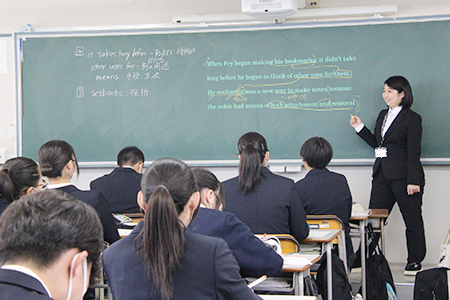 it takes long before
other uses for :
means : 手段・方法
setbacks :
When Fry began making his bookmarks, it didn't take
long before he began to think of other uses for them.
He realized it was a new way to make notes because
the notes had means of both attachment and removal.